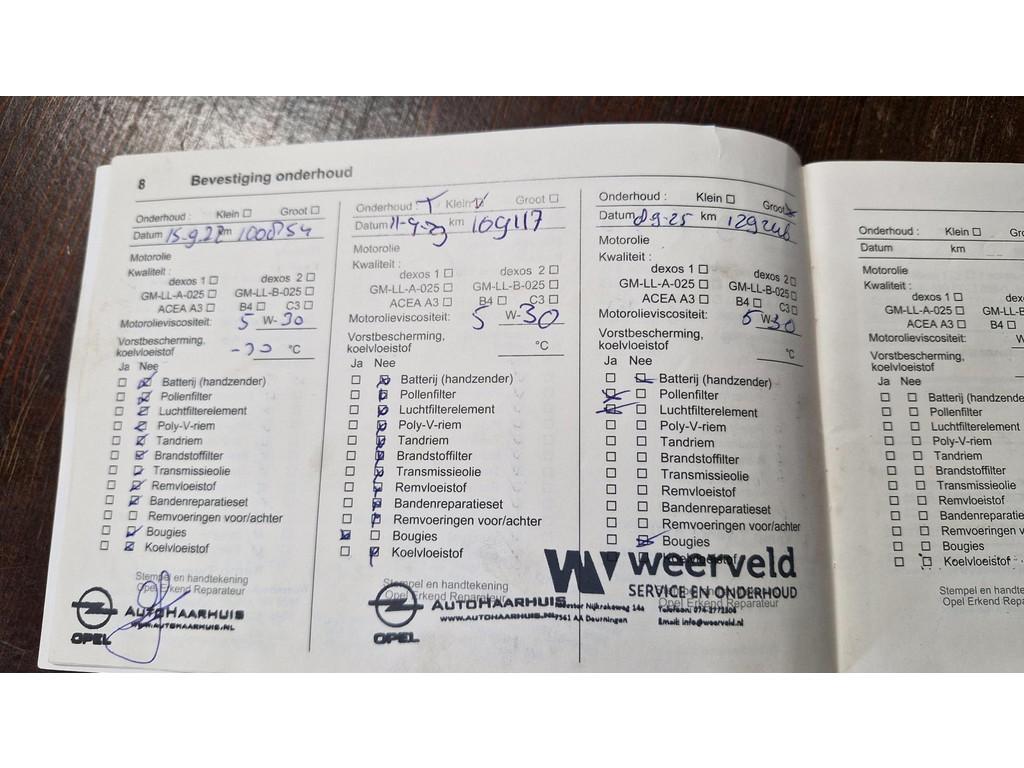 8 Bevestiging onderhoud
Onderhoud : Klein ☐ Groot ☐
Datum 15.9.22 km
Motorolie
Kwaliteit :
dexos 1 ☐ dexos 2 ☐
GM-LL-A-025 ☐ GM-LL-B-025 ☐
ACEA A3 ☐ B4 ☐ C3 ☐
Motorolieviscositeit: 5 W-30
Vorstbescherming,
koelvloeistof °C
Ja Nee
Batterij (handzender)
Pollenfilter
Luchtfilterelement
Poly-V-riem
Tandriem
Brandstoffilter
Transmissieolie
Remvloeistof
Bandenreparatieset
Remvoeringen voor/achter
Bougies
Koelvloeistof
Stempel en handtekening
Opel Erkend Reparateur
OPEL
AUTOHAARHUIS
WWW.AUTOHAARHUIS.NL
Onderhoud : Klein Groot ☐
Datum 11-9-23 km 109117
Motorolie
Kwaliteit :
dexos 1 ☐ dexos 2 ☐
GM-LL-A-025 ☐ GM-LL-B-025 ☐
ACEA A3 ☐ B4 ☐ C3 ☐
Motorolieviscositeit: 5 W-30
Vorstbescherming,
koelvloeistof °C
Ja Nee
Batterij (handzender)
Pollenfilter
Luchtfilterelement
Poly-V-riem
Tandriem
Brandstoffilter
Transmissieolie
Remvloeistof
Bandenreparatieset
Remvoeringen voor/achter
Bougies
Koelvloeistof
Stempel en handtekening
Opel Erkend Reparateur
OPEL
AUTOHAARHUIS
WWW.AUTOHAARHUIS.NL
Onderhoud : Klein ☐ Groot
Datum km
Motorolie
Kwaliteit :
dexos 1 ☐ dexos 2 ☐
GM-LL-A-025 ☐ GM-LL-B-025 ☐
ACEA A3 ☐ B4 ☐ C3 ☐
Motorolieviscositeit: 5 W-30
Vorstbescherming,
koelvloeistof °C
Ja Nee
Batterij (handzender)
Pollenfilter
Luchtfilterelement
Poly-V-riem
Tandriem
Brandstoffilter
Transmissieolie
Remvloeistof
Bandenreparatieset
Remvoeringen voor/achter
Bougies
Koelvloeistof
weerveld
SERVICE EN ONDERHOUD
Opel Erkend Reparateur
Nijkrakeweg 14a
7561 AA Deurningen
Telefoon: 074-2772504
Email: info@weerveld.nl
Onderhoud : Klein ☐ Groot
Datum km
Motorolie
Kwaliteit :
dexos 1 ☐ dexos
GM-LL-A-025 ☐ GM-LL-B
ACEA A3 ☐ B4 ☐
Motorolieviscositeit: W
Vorstbescherming,
koelvloeistof
Ja Nee
Batterij (handzende
Pollenfilter
Luchtfilterelement
Poly-V-riem
Tandriem
Brandstoffilter
Transmissieolie
Remvloeistof
Bandenreparatie
Remvoeringen vo
Bougies
Koelvloeistof
Stempel en handteken
Opel Erkend Reparateu